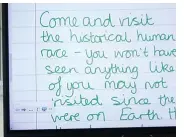 Come and visit
the historical human
race - you won't have
seen anything like
of you may not
visited since the
were on Earth. H